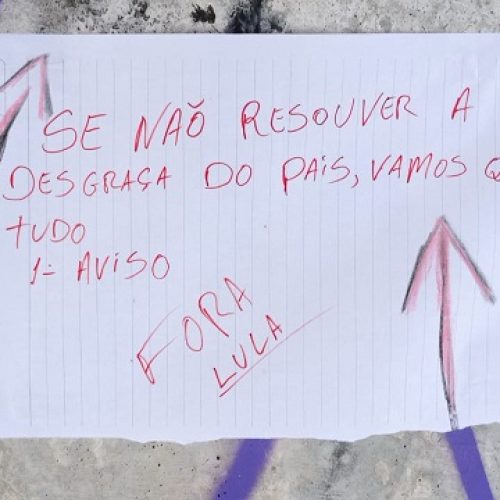 SE NAÕ RESOUVER A
DESGRAÇA DO PAIS, VAMOS
TUDO
1- AVISO
FORA
LULA